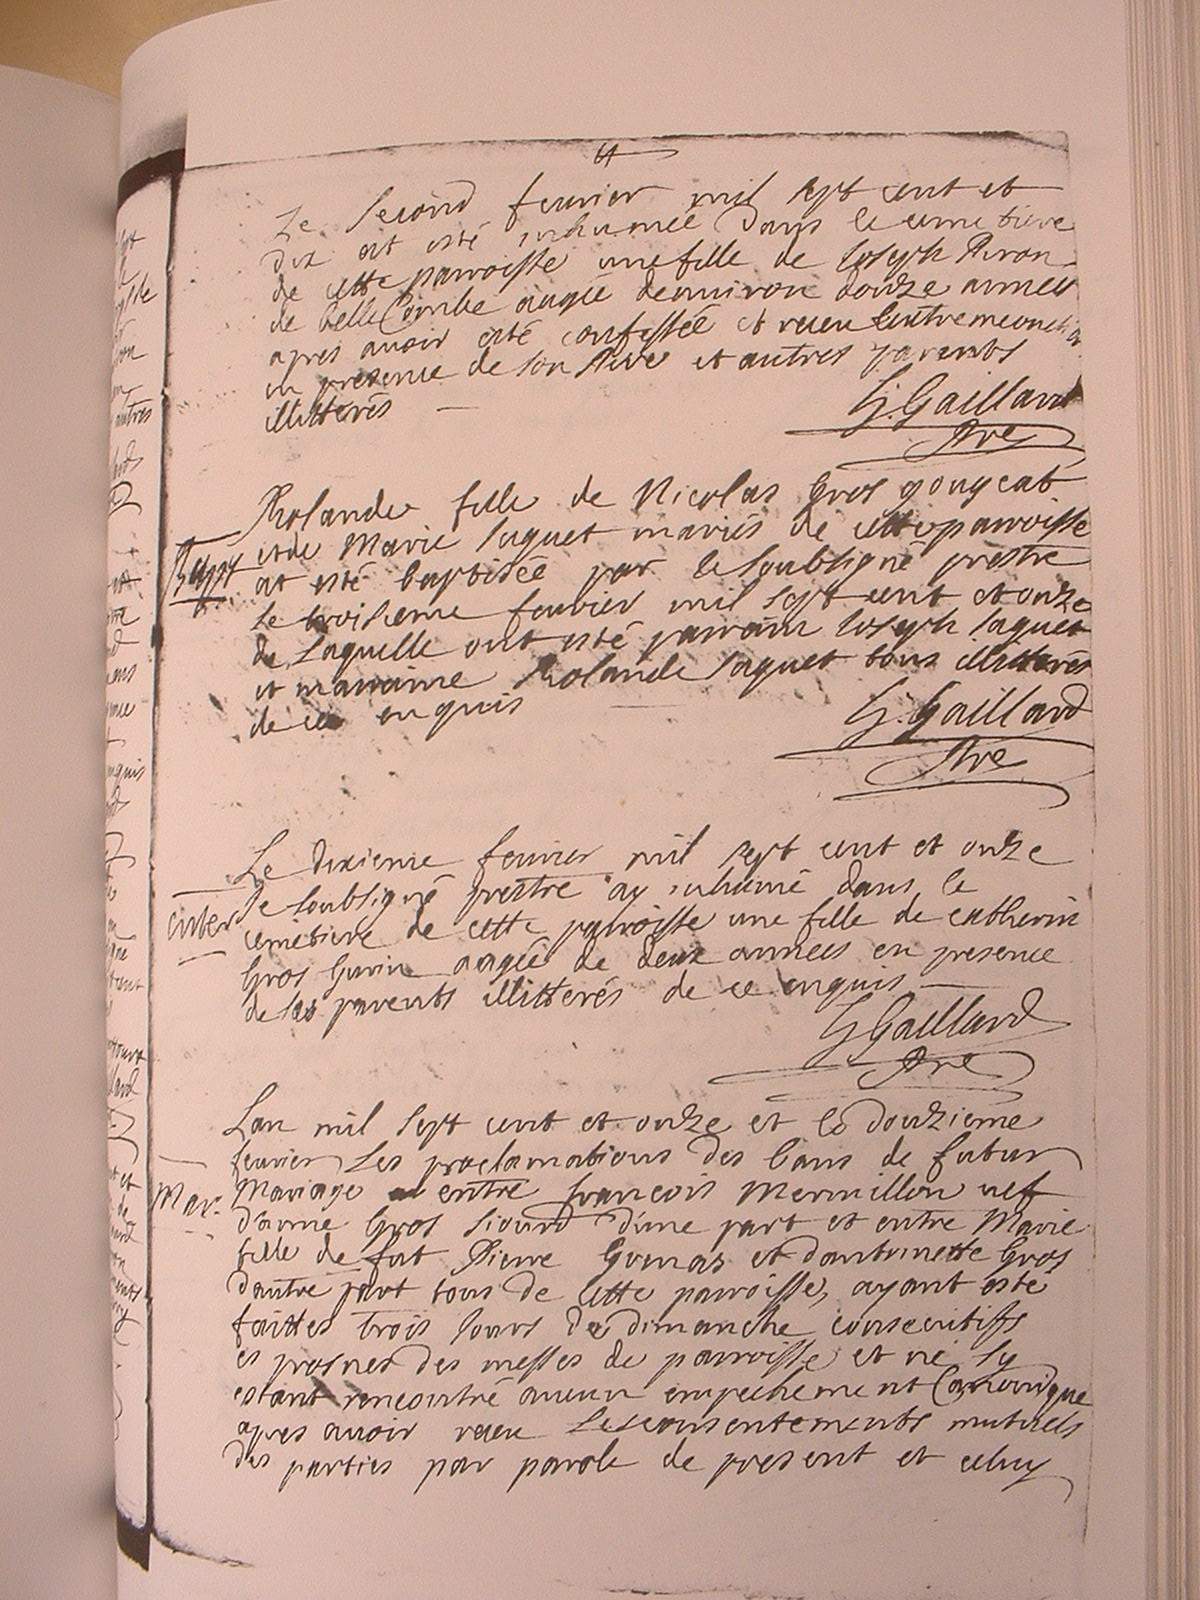 Le second feuvrier mil sept cent et
dix at esté inhumée dans le cimetiere
de cette parroisse une fille de Joseph
de belle Combe aagée denuiron douze années
apres auoir esté confessée et receu lextremeonction
en presence de son Pere et autres parents
illitterés —
G. Gaillard
Pre
Rolande fille de Nicolas Gros gougeat
et de Marie Jaquet mariés de cette parroisse
Bapt
at esté baptisée par le soubsigné prestre
le troisieme feuvrier mil sept cent et onze
de Laquelle ont esté parrain Joseph Jaquet
et marraine Rolande Jaquet tous illitterés
de ce enquis
G. Gaillard
Pre
Le dixieme feuvrier mil sept cent et onze
Je soubsigné prestre ay inhumé dans le
enter
cemetiere de cette parroisse une fille de catherin
Gros aagée de deux années en presence
de ses parents illitterés de ce enquis —
G Gaillard
Pre
Lan mil sept cent et onze et le douzieme
feuvrier Les proclamations des bans de futur
Mar.
Mariage entre françois Mermillon
Gros dune part et entre Marie
fille de fut Pierre et dantoinette Gros
dautre part tous de cette parroisse, ayant esté
faittes trois Jours de dimanche consecutifs
es prosnes des messes de parroisse et ne sy
estant rencontré aucun empechement Canonique
apres auoir receu Les consentements mutuels
des parties par parole de present et celuy